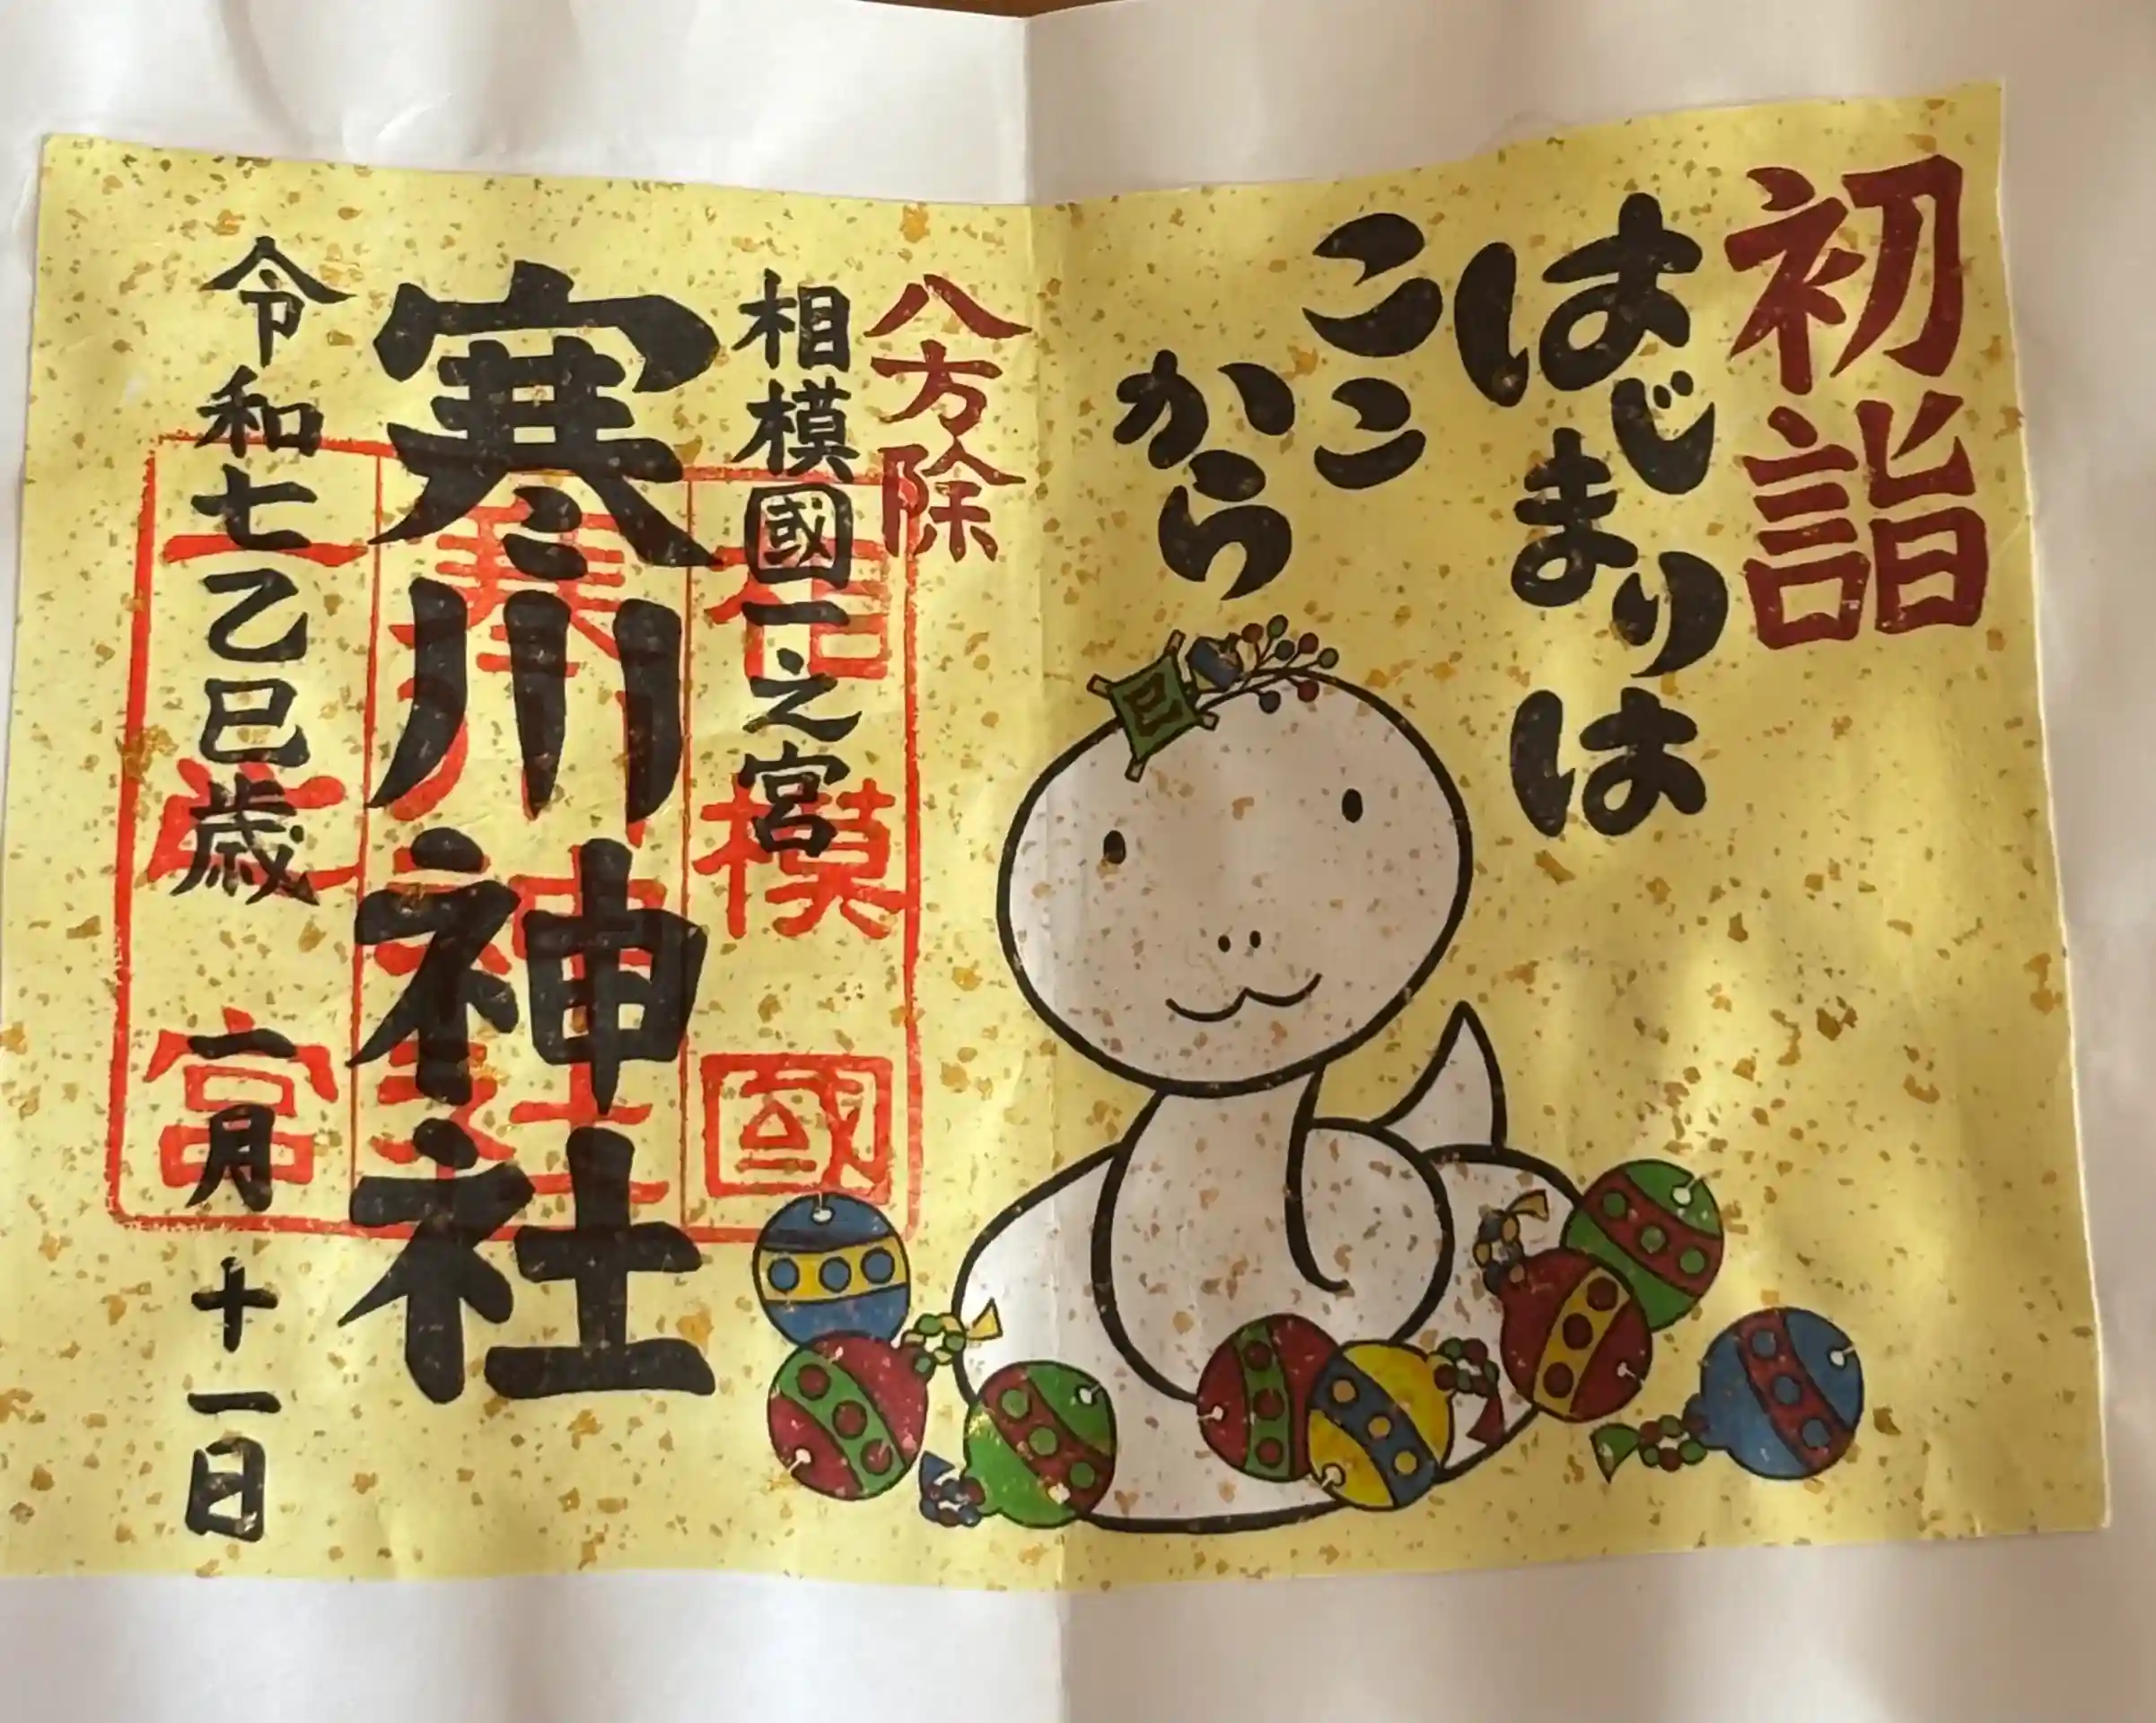 初詣
はじまりは
ここ
から
八方除
相模國一之宮
寒川神社
令和七乙巳歳
一月十一日
巳
模國
神社
宮